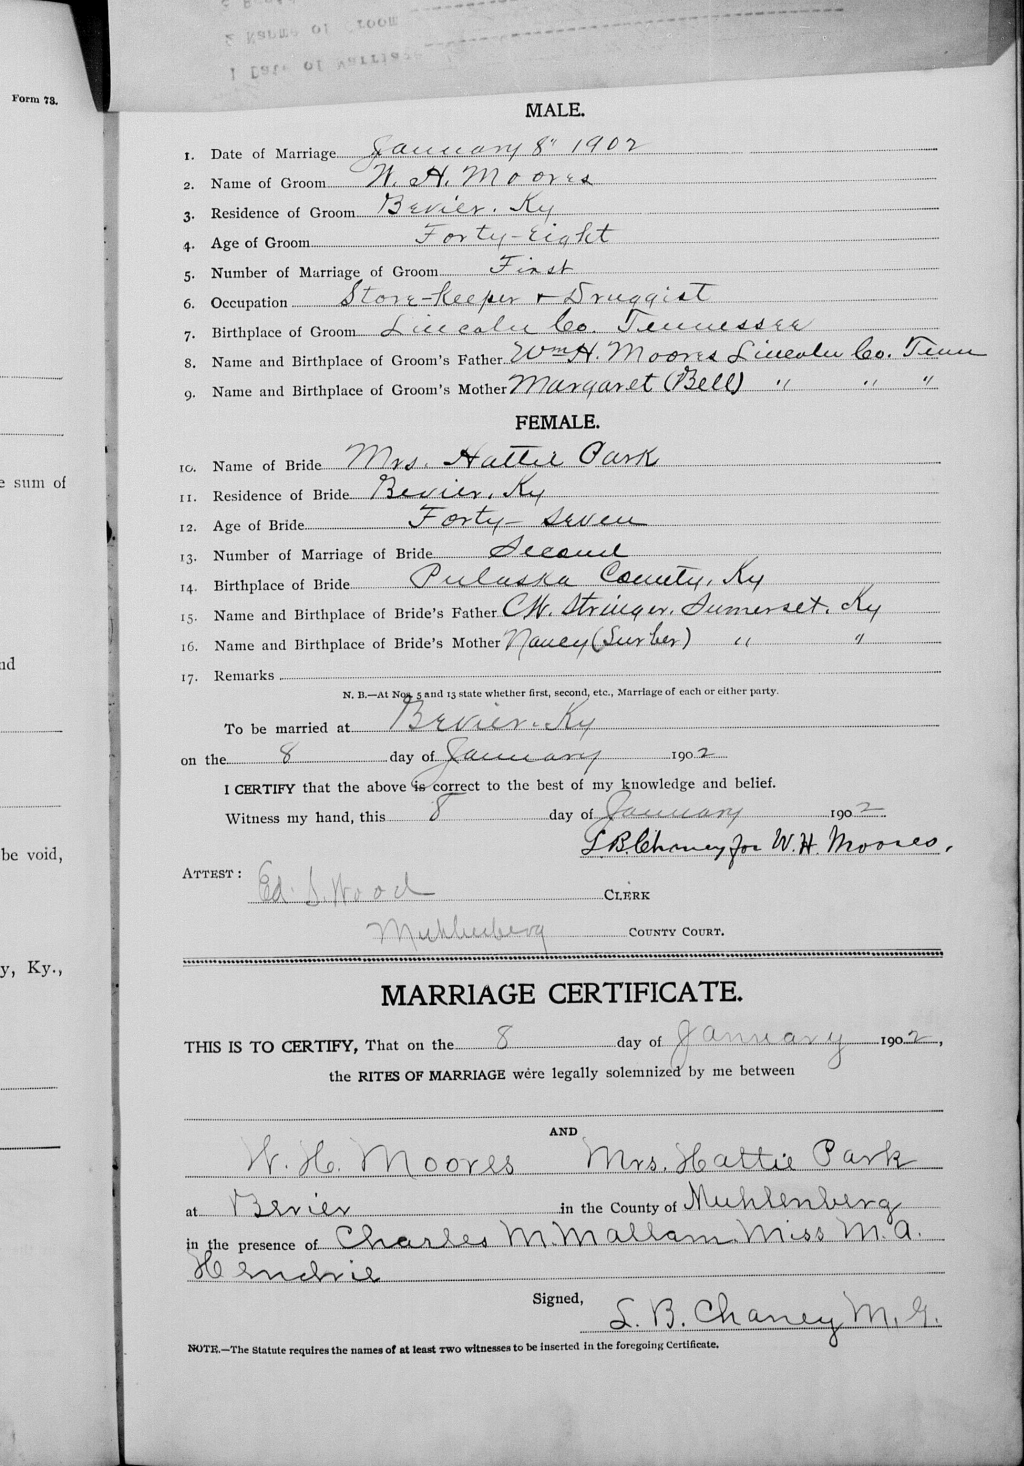 Form 73.
e sum of
nd
be void,
y, Ky.,
2 Name of Groom
1 Date of Marriage
MALE.
1. Date of Marriage January 8" 1902
2. Name of Groom W. H. Moores
3. Residence of Groom Bevier. Ky
4. Age of Groom Forty-Eight
5. Number of Marriage of Groom First
6. Occupation Store-keeper + Druggist
7. Birthplace of Groom Lincoln Co. Tennessee
8. Name and Birthplace of Groom's Father Wm H. Moores Lincoln Co. Tenn
9. Name and Birthplace of Groom's Mother Margaret (Bell) " " "
FEMALE.
10. Name of Bride Mrs. Hattie Park
11. Residence of Bride Bevier. Ky
12. Age of Bride Forty-Seven
13. Number of Marriage of Bride Second
14. Birthplace of Bride Pulaska County, Ky
15. Name and Birthplace of Bride's Father C.W. Stringer. Sumerset. Ky
16. Name and Birthplace of Bride's Mother Nancy (Surber) " "
17. Remarks
N. B.—At Nos. 5 and 13 state whether first, second, etc., Marriage of each or either party.
To be married at Bevier. Ky
on the 8 day of January 1902
I CERTIFY that the above is correct to the best of my knowledge and belief.
Witness my hand, this 8 day of January 1902
L.B. Chaney for W. H. Moores,
ATTEST: Ed. S. Wood CLERK
Muhlenberg COUNTY COURT.
MARRIAGE CERTIFICATE.
THIS IS TO CERTIFY, That on the 8 day of January 1902,
the RITES OF MARRIAGE were legally solemnized by me between
AND
W. H. Moores Mrs. Hattie Park
at Bevier in the County of Muhlenberg
in the presence of Charles M. Mallam. Miss M. A.
Hendrie
Signed,
L. B. Chaney M. G.
NOTE.—The Statute requires the names of at least TWO witnesses to be inserted in the foregoing Certificate.